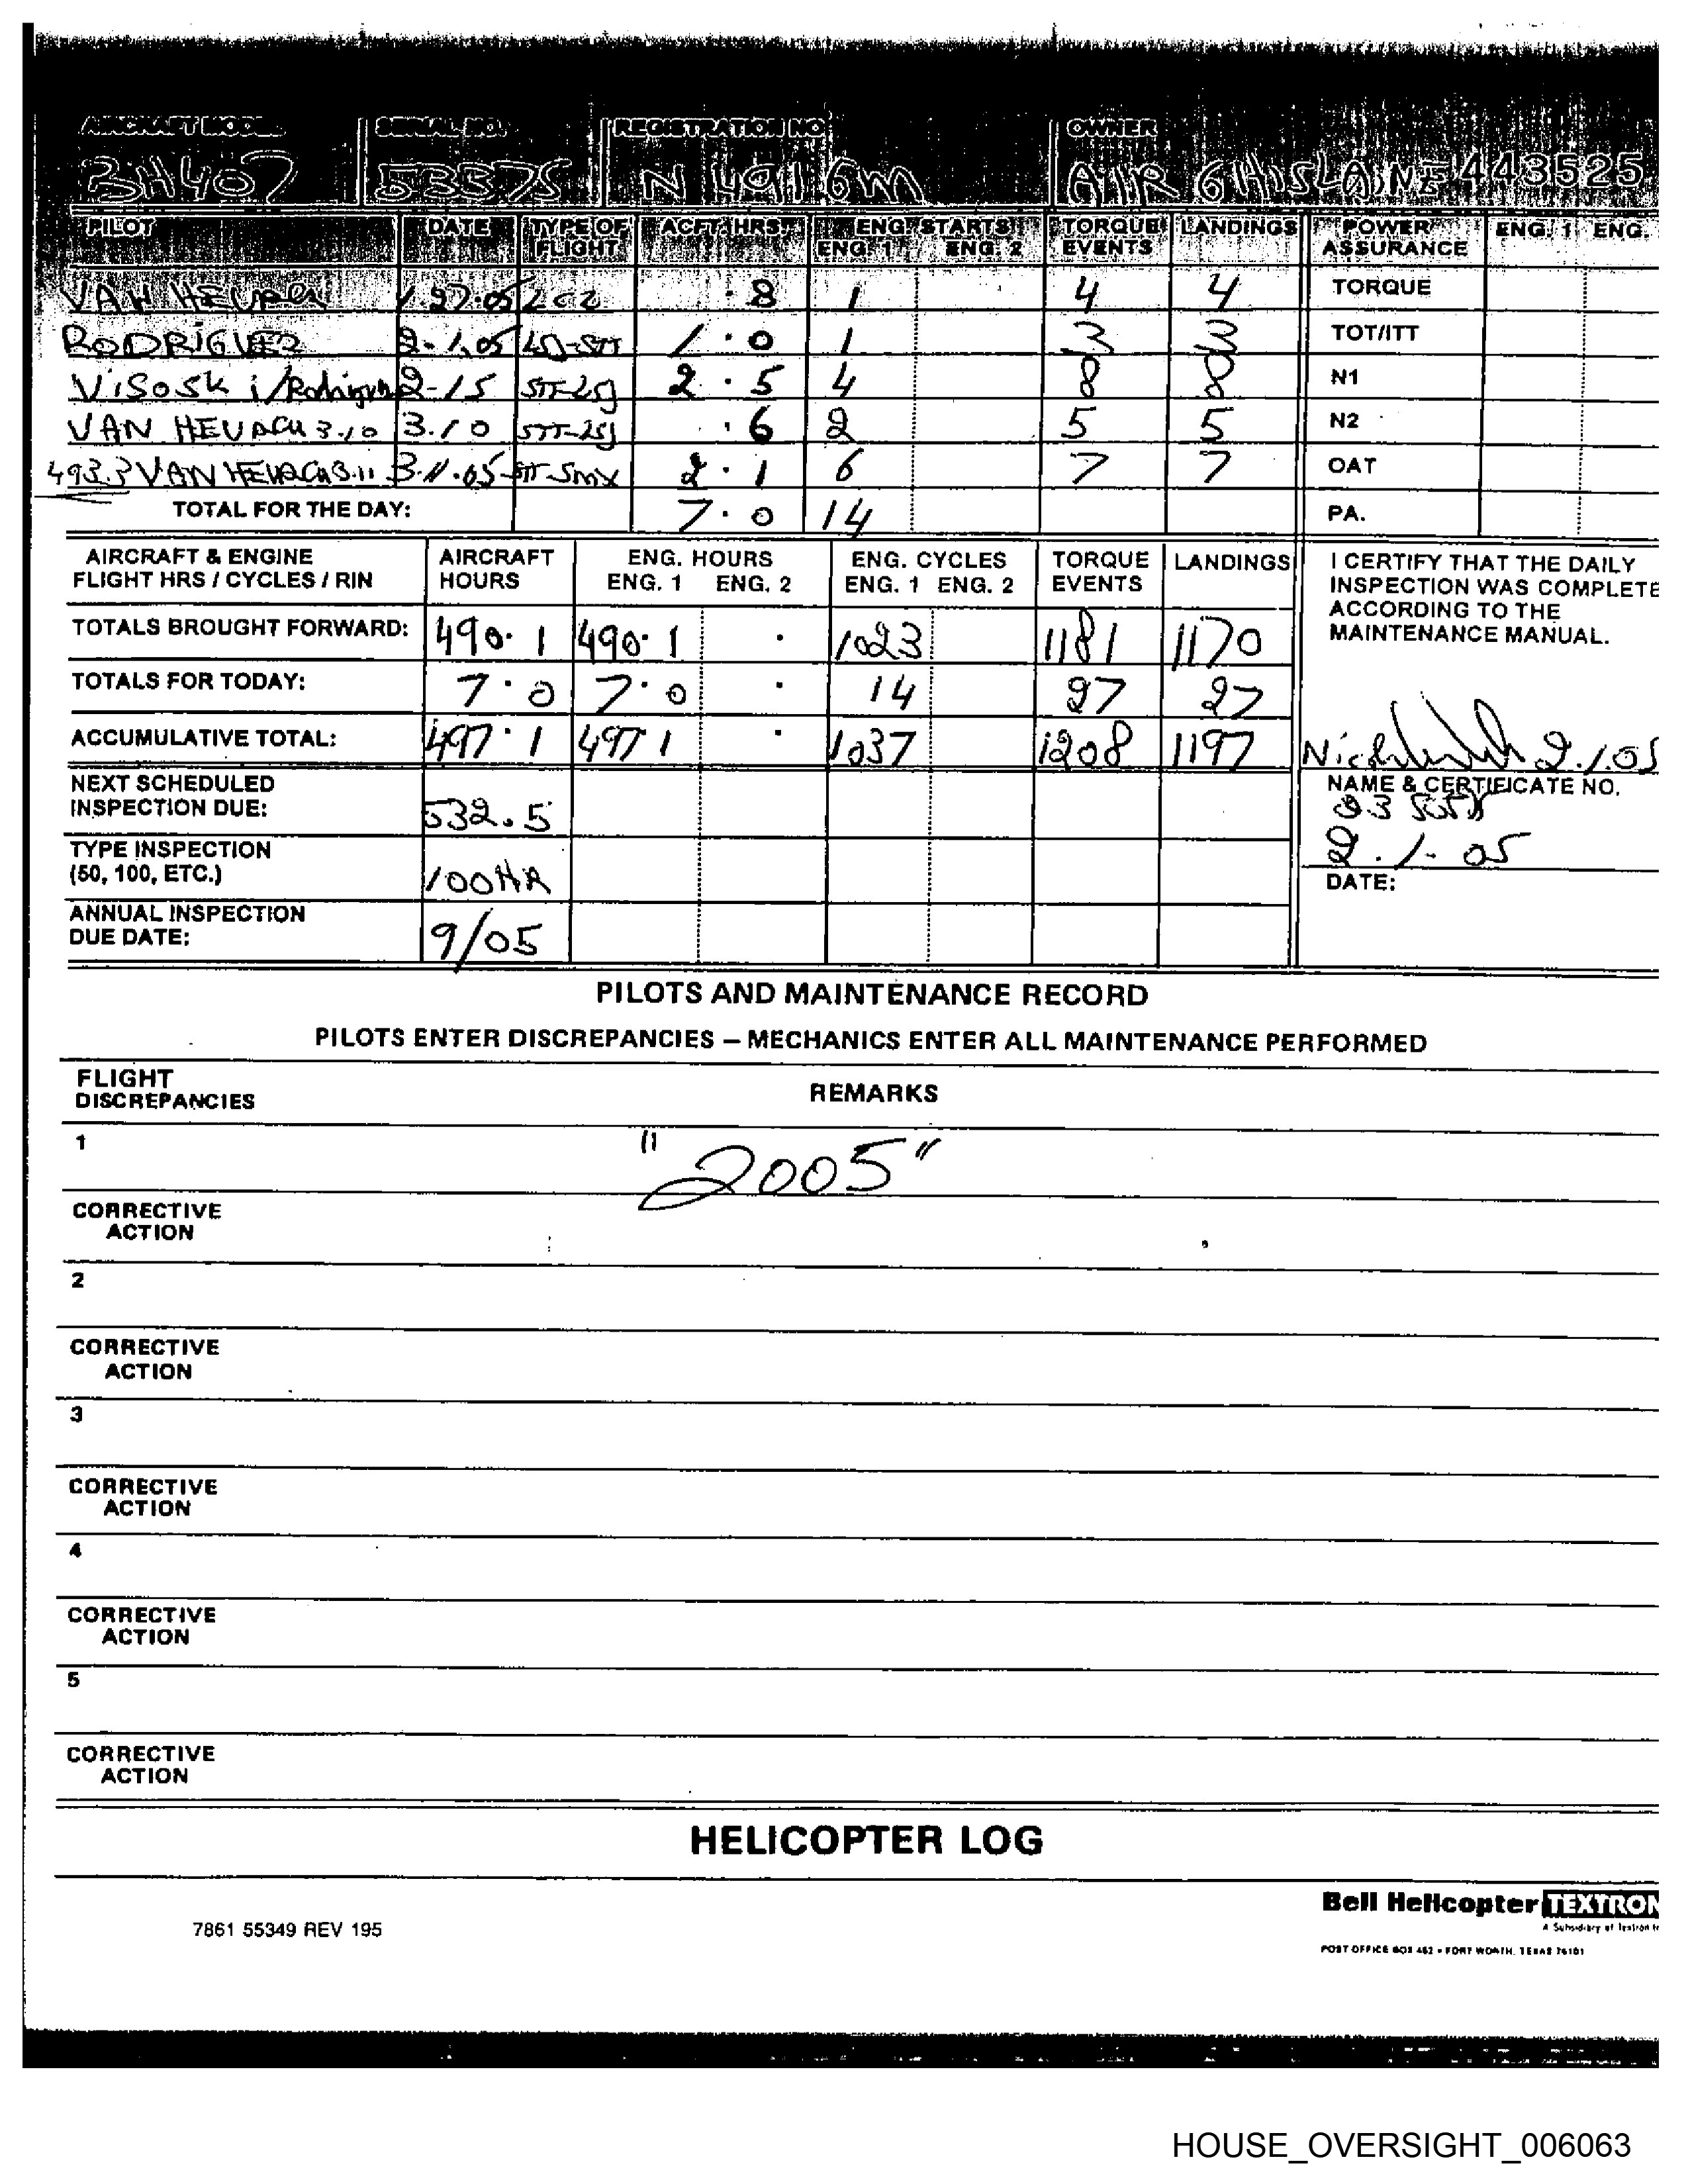 AIRCRAFT MODEL SERIAL NO. REGISTRATION NO OWNER
BH407 53375 N 491 6M AIR GHISLAINE 443525
PILOT DATE TYPE OF FLIGHT ACFT. HRS. ENG. STARTS ENG. 1 ENG. 2 TORQUE EVENTS LANDINGS POWER ASSURANCE ENG. 1 ENG.
VAN HEUVEN 27.05 .8 1 4 4 TORQUE
RODRIGUEZ 2.1.05 1.0 1 3 3 TOT/ITT
Visoski/Rodriguez 2-15 STT-LSJ 2.5 4 8 8 N1
VAN 3.10 3.10 STT-LSJ .6 2 5 5 N2
493.3 VAN 3.11 3.11.05 STT-SMX 2.1 6 7 7 OAT
TOTAL FOR THE DAY: 7.0 14 PA.
AIRCRAFT & ENGINE FLIGHT HRS / CYCLES / RIN AIRCRAFT HOURS ENG. HOURS ENG. 1 ENG. 2 ENG. CYCLES ENG. 1 ENG. 2 TORQUE EVENTS LANDINGS
I CERTIFY THAT THE DAILY
INSPECTION WAS COMPLETE
ACCORDING TO THE
MAINTENANCE MANUAL.
TOTALS BROUGHT FORWARD: 490.1 490.1 . 1023 1181 1170
TOTALS FOR TODAY: 7.0 7.0 . 14 27 27
ACCUMULATIVE TOTAL: 497.1 497 1 . 1037 1208 1197
2.1.05
NAME & CERTIFICATE NO.
NEXT SCHEDULED
INSPECTION DUE: 532.5
TYPE INSPECTION
(50, 100, ETC.) 100HR
2.1.05
DATE:
ANNUAL INSPECTION
DUE DATE: 9/05
PILOTS AND MAINTENANCE RECORD
PILOTS ENTER DISCREPANCIES – MECHANICS ENTER ALL MAINTENANCE PERFORMED
FLIGHT
DISCREPANCIES REMARKS
1 "2005"
CORRECTIVE
ACTION
2
CORRECTIVE
ACTION
3
CORRECTIVE
ACTION
4
CORRECTIVE
ACTION
5
CORRECTIVE
ACTION
HELICOPTER LOG
Bell Helicopter TEXTRON
A Subsidiary of Textron
7861 55349 REV 195
POST OFFICE BOX 482 • FORT WORTH, TEXAS 76101
HOUSE_OVERSIGHT_006063